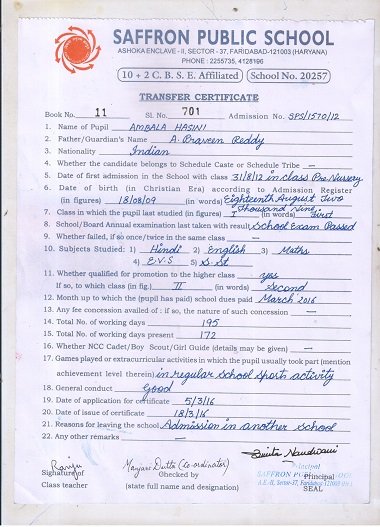 SAFFRON PUBLIC SCHOOL
ASHOKA ENCLAVE - II, SECTOR - 37, FARIDABAD-121003 (HARYANA)
PHONE : 2255735, 4128196
10 + 2 C. B. S. E. Affiliated School No. 20257
TRANSFER CERTIFICATE
Book No. 11 Sl. No. 701 Admission No. SPS/1570/12
1. Name of Pupil AMBALA HASINI
2. Father/Guardian's Name A. Praveen Reddy
3. Nationality Indian
4. Whether the candidate belongs to Schedule Caste or Schedule Tribe —
5. Date of first admission in the School with class 31/8/12 in class Pre Nursery
6. Date of birth (in Christian Era) according to Admission Register
(in figures) 18/08/09 (in words) Eighteenth August Two
Thousand Nine
7. Class in which the pupil last studied (in figures) I (in words) First
8. School/Board Annual examination last taken with result School Exam Passed
9. Whether failed, if so once/twice in the same class —
10. Subjects Studied: 1) Hindi 2) English 3) Maths
4) E.V.S 5) S.St
11. Whether qualified for promotion to the higher class yes
If so, to which class (in fig.) II (in words) Second
12. Month up to which the (pupil has paid) school dues paid March 2016
13. Any fee concession availed of : if so, the nature of such concession —
14. Total No. of working days 195
15. Total No. of working days present 172
16. Whether NCC Cadet/Boy Scout/Girl Guide (details may be given) —
17. Games played or extracurricular activities in which the pupil usually took part (mention
achievement level therein) in regular school sports activity
18. General conduct Good
19. Date of application for certificate 5/3/16
20. Date of issue of certificate 18/3/16
21. Reasons for leaving the school Admission in another school
22. Any other remarks —
Ranju Manjari Dutta (Co-ordinator)
Signature of Checked by Principal
Class teacher (state full name and designation) SEAL
Principal
SAFFRON PUBLIC SCHOOL
A.E.-II, Sector-37, Faridabad